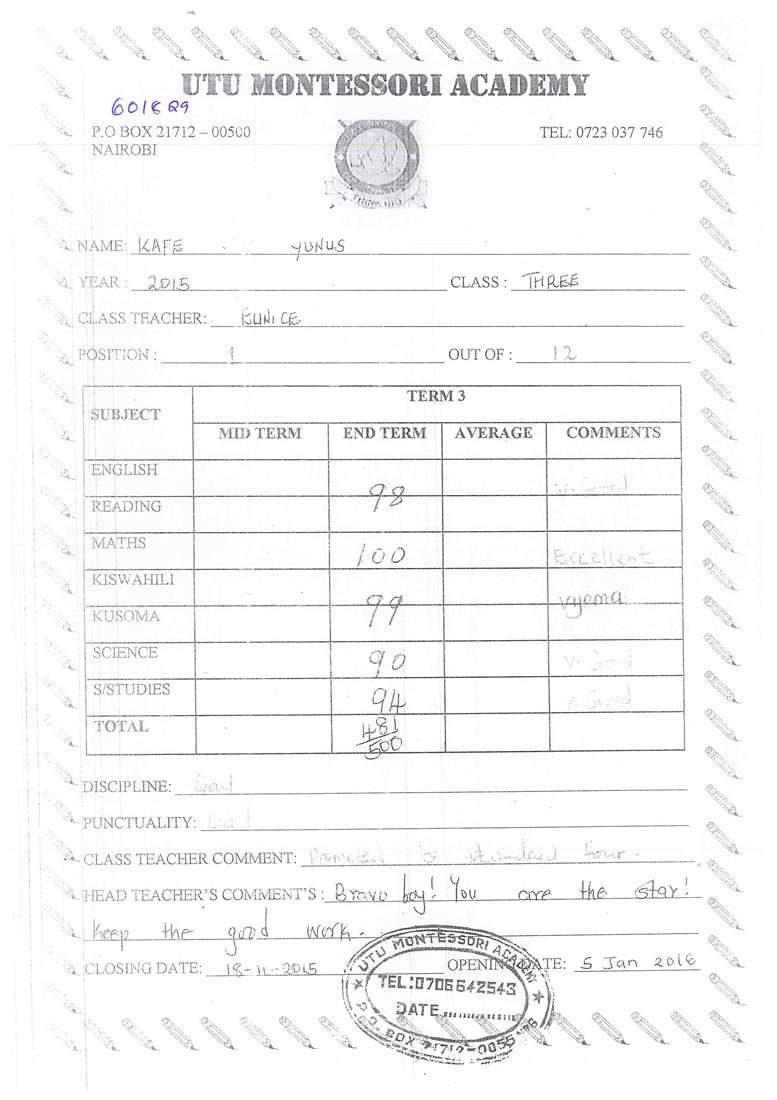 UTU MONTESSORI ACADEMY
601829
P.O BOX 21712 – 00500
NAIROBI
TEL: 0723 037 746
THINK BIG
NAME: KAFE YUNUS
YEAR : 2015 CLASS : THREE
CLASS TEACHER: EUNICE
POSITION : 1 OUT OF : 12
SUBJECT TERM 3
MID TERM END TERM AVERAGE COMMENTS
ENGLISH
98 V. Good
READING
MATHS 100 Excellent
KISWAHILI
99 Vyema
KUSOMA
SCIENCE 90 V. Good
S/STUDIES 94 V. Good
TOTAL 481/500
DISCIPLINE: Good
PUNCTUALITY: Good
CLASS TEACHER COMMENT: Promoted to standard four.
HEAD TEACHER'S COMMENT'S : Bravo boy! You are the star!
keep the good work.
CLOSING DATE: 18-11-2015 OPENING DATE: 5 Jan 2016
UTU MONTESSORI ACADEMY
TEL:0706642543
DATE
P.O. BOX 21712-00